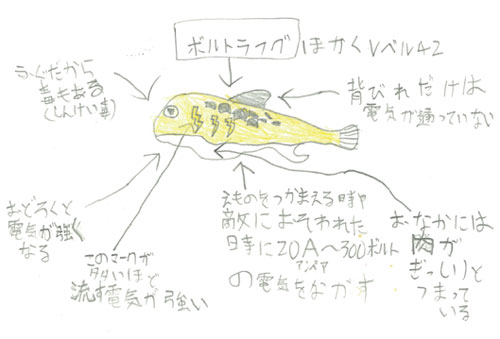 ボルトラフグ ほかくレベル42
ふぐだから
毒もある
(しんけい毒)
背びれだけは
電気が通っていない
おどろくと
電気が強く
なる
このマークが
多いほど
流す電気が強い
えものをつかまえる時や
敵におそわれた
時に20A~300ボルト
アンペア
の電気をながす
おなかには
肉が
ぎっしりと
つまって
いる